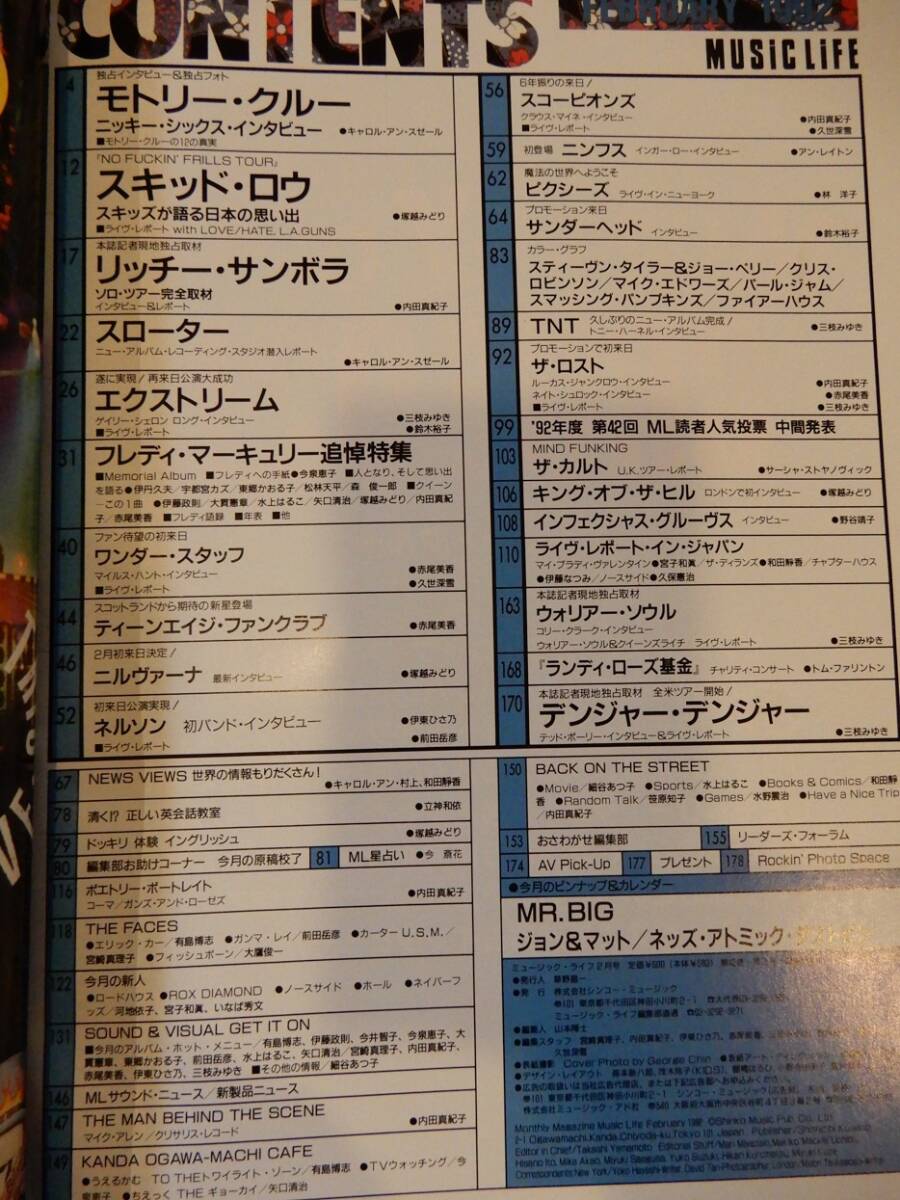 CONTENTS
FEBRUARY 1992
MUSIC LIFE
4
独占インタビュー&独占フォト
モトリー・クルー
ニッキー・シックス・インタビュー ●キャロル・アン・スゼール
■モトリー・クルーの12の真実
12
『NO FUCKIN' FRILLS TOUR』
スキッド・ロウ
スキッズが語る日本の思い出 ●塚越みどり
■ライヴ・レポート with LOVE/HATE, L.A.GUNS
17
本誌記者現地独占取材
リッチー・サンボラ
ソロ・ツアー完全取材
インタビュー&レポート ●内田真紀子
22
スローター
ニュー・アルバム・レコーディング・スタジオ潜入レポート
●キャロル・アン・スゼール
26
遂に実現/再来日公演大成功
エクストリーム
ゲイリー・シェロン ロング・インタビュー ●三枝みゆき
■ライヴ・レポート ●鈴木裕子
31
フレディ・マーキュリー追悼特集
■Memorial Album ■フレディへの手紙●今泉恵子 ■人となり、そして思い出
を語る●伊丹久夫/宇都宮カズ/東郷かおる子/松林天平/森 俊一郎 ■クイーン
―この1曲 ●伊藤政則/大貫憲章/水上はるこ/矢口清治/塚越みどり/内田真紀
子/赤尾美香 ■フレディ語録 ■年表 ■他
40
ファン待望の初来日
ワンダー・スタッフ
マイルス・ハント・インタビュー ●赤尾美香
■ライヴ・レポート ●久世深雪
44
スコットランドから期待の新星登場
ティーンエイジ・ファンクラブ ●赤尾美香
46
2月初来日決定/
ニルヴァーナ 最新インタビュー ●塚越みどり
52
初来日公演実現
ネルソン 初バンド・インタビュー ●伊東ひさ乃
■ライヴ・レポート ●前田岳彦
56
6年振りの来日/
スコーピオンズ
クラウス・マイネ・インタビュー ●内田真紀子
■ライヴ・レポート ●久世深雪
59
初登場 ニンフス インガー・ロー・インタビュー ●アン・レイトン
62
魔法の世界へようこそ
ピクシーズ ライヴ・イン・ニューヨーク ●林 洋子
64
プロモーション来日
サンダーヘッド インタビュー ●鈴木裕子
83
カラー・グラフ
スティーヴン・タイラー&ジョー・ペリー/クリス・
ロビンソン/マイク・エドワーズ/パール・ジャム/
スマッシング・パンプキンズ/ファイアーハウス
89
TNT 久しぶりのニュー・アルバム完成/
トニー・ハーネル・インタビュー ●三枝みゆき
92
プロモーションで初来日
ザ・ロスト
ルーカス・ジャンクロウ・インタビュー ●内田真紀子
ネイト・シュロック・インタビュー ●赤尾美香
■ライヴ・レポート ●三枝みゆき
99
'92年度 第42回 ML読者人気投票 中間発表
103
MIND FUNKING
ザ・カルト U.K.ツアー・レポート ●サーシャ・ストヤノヴィック
106
キング・オブ・ザ・ヒル ロンドンで初インタビュー ●塚越みどり
108
インフェクシャス・グルーヴス インタビュー ●野谷晴子
110
ライヴ・レポート・イン・ジャパン
マイ・ブラディ・ヴァレンタイン●宮子和眞/ザ・ディランズ●和田静香/チャプターハウス
●伊藤なつみ/ノースサイド●久保憲治
163
本誌記者現地独占取材
ウォリアー・ソウル
コリー・クラーク・インタビュー
ウォリアー・ソウル&クイーンズライチ ライヴ・レポート ●三枝みゆき
168
『ランディ・ローズ基金』 チャリティ・コンサート ●トム・ファリントン
170
本誌記者現地独占取材 全米ツアー開始/
デンジャー・デンジャー
テッド・ポーリー・インタビュー&ライヴ・レポート ●三枝みゆき
67
NEWS VIEWS 世界の情報もりだくさん!
●キャロル・アン・村上、和田靜香
78
清く!? 正しい英会話教室 ●立神和依
79
ドッキリ 体験 イングリッシュ ●塚越みどり
80
編集部お助けコーナー 今月の原稿校了 81 ML星占い ●今 斎花
116
ポエトリー・ポートレイト
コーマ/ガンズ・アンド・ローゼズ ●内田真紀子
118
THE FACES
●エリック・カー/有島博志 ●ガンマ・レイ/前田岳彦 ●カーター U.S.M./
宮崎真理子 ●フィッシュボーン/大鷹俊一
122
今月の新人
●ロードハウス ●ROX DIAMOND ●ノースサイド ●ホール ●ネイバーフ
ッズ/河地依子、宮子和眞、いなば秀文
131
SOUND & VISUAL GET IT ON
■今月のアルバム・ホット・メニュー/有島博志、伊藤政則、今井智子、今泉恵子、大
貫憲章、東郷かおる子、前田岳彦、水上はるこ、矢口清治/宮崎真理子、内田真紀子、
赤尾美香、伊東ひさ乃、三枝みゆき ■その他の情報/細谷あつ子
146
MLサウンド・ニュース/新製品ニュース
147
THE MAN BEHIND THE SCENE
マイク・アレン/クリサリス・レコード ●内田真紀子
149
KANDA OGAWA-MACHI CAFE
●うえるかむ TO THEトワイライト・ゾーン/有島博志 ●TVウォッチング/今
泉恵子 ●ちえっく THE ギョーカイ/矢口清治
150
BACK ON THE STREET
●Movie/細谷あつ子 ●Sports/水上はるこ ●Books & Comics/和田靜
香 ●Random Talk/笹原知子 ●Games/水野震治 ●Have a Nice Trip
/内田真紀子
153 おさわがせ編集部 155 リーダーズ・フォーラム
174 AV Pick-Up 177 プレゼント 178 Rockin' Photo Space
●今月のピンナップ&カレンダー
MR.BIG
ジョン&マット/ネッズ・アトミック・
ミュージック・ライフ2月号 定価¥600
●発行人 草野昌一
●発 行 株式会社シンコー・ミュージック
●101 東京都千代田区神田小川町2-1
ミュージック・ライフ編集部直通
●編集人 山本隆士
●編集スタッフ 宮崎真理子、内田真紀子、伊東ひさ乃、
久世深雪
●表紙撮影 Cover Photo by George Chin
●デザイン・レイアウト
●広告の取扱いは当社広告代理店、または下記広告部へお申込みください。
Monthly Magazine Music Life February
2-1 Ogawamachi, Kanda, Chiyoda-ku, Tokyo 101 Japan
Editor in Chief/Takashi Yamamoto